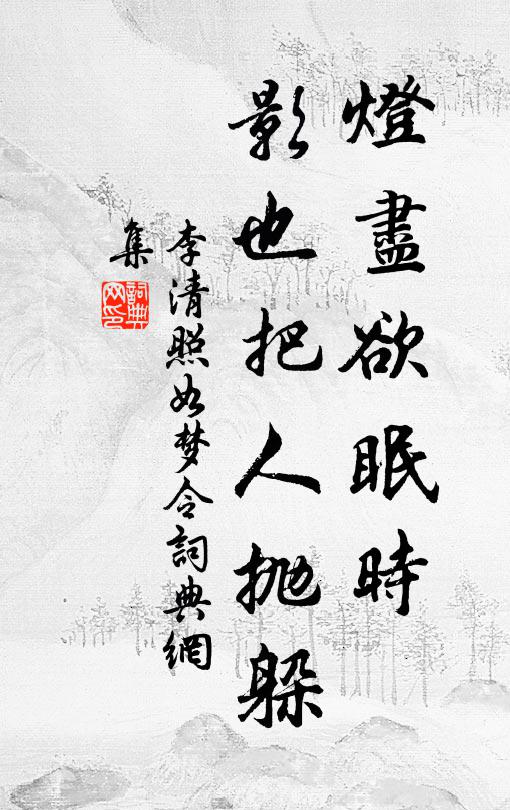 燈盡欲眠時
影也把人抛躲
李清照如梦令詞典網
集
詞典网印